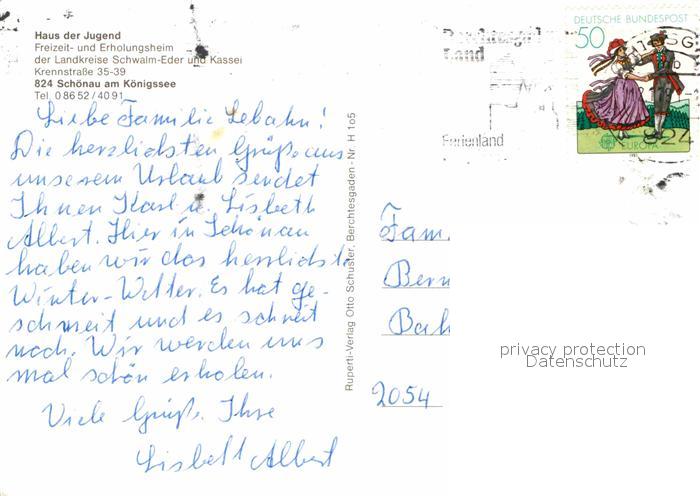 Haus der Jugend
Freizeit- und Erholungsheim
der Landkreise Schwalm-Eder und Kassel
Krennstraße 35-39
824 Schönau am Königssee
Tel. 0 86 52 / 40 91
Liebe Familie Lebahn!
Die herzlichsten Grüße aus
unserem Urlaub sendet
Ihnen Karl u. Lisbeth
Albert. Hier in Schönau
haben wir das herrlichste
Winter-Wetter. Es hat ge-
schneit und es schneit
noch. Wir werden uns
mal schön erholen.
Viele Grüße. Ihre
Lisbeth Albert
Ruperti-Verlag Otto Schuster, Berchtesgaden - Nr. H 165
DEUTSCHE BUNDESPOST
50
EUROPA
Land
Ferienland
824
Fam.
Bern
Bah
2054
privacy protection
Datenschutz